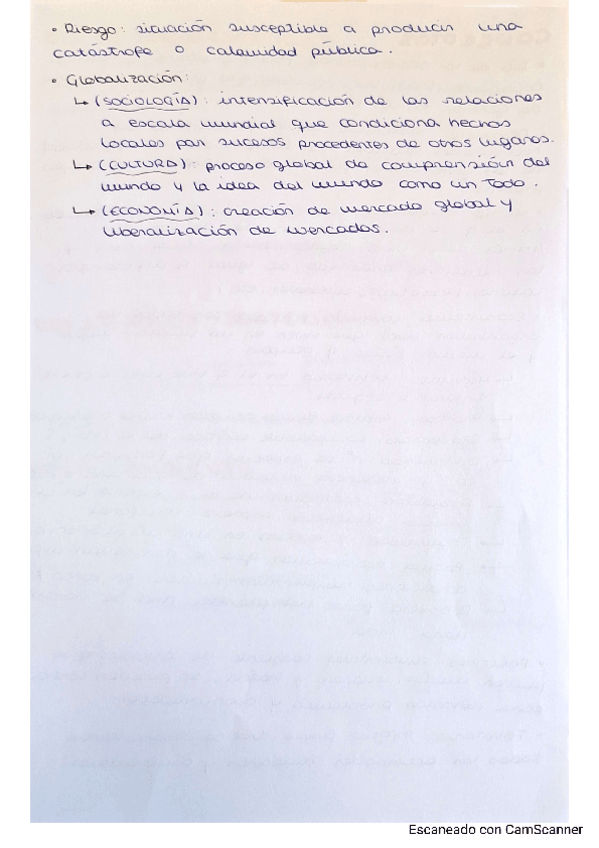 • Riesgo: situación susceptible a producir una
catástrofe o calamidad pública.
• Globalización:
↳ (SOCIOLOGÍA): intensificación de las relaciones
a escala mundial que condiciona hechos
locales por sucesos procedentes de otros lugares.
↳ (CULTURA): proceso global de comprensión del
mundo y la idea del mundo como un Todo.
↳ (ECONOMÍA): creación de mercado global y
liberalización de mercados.
Escaneado con CamScanner